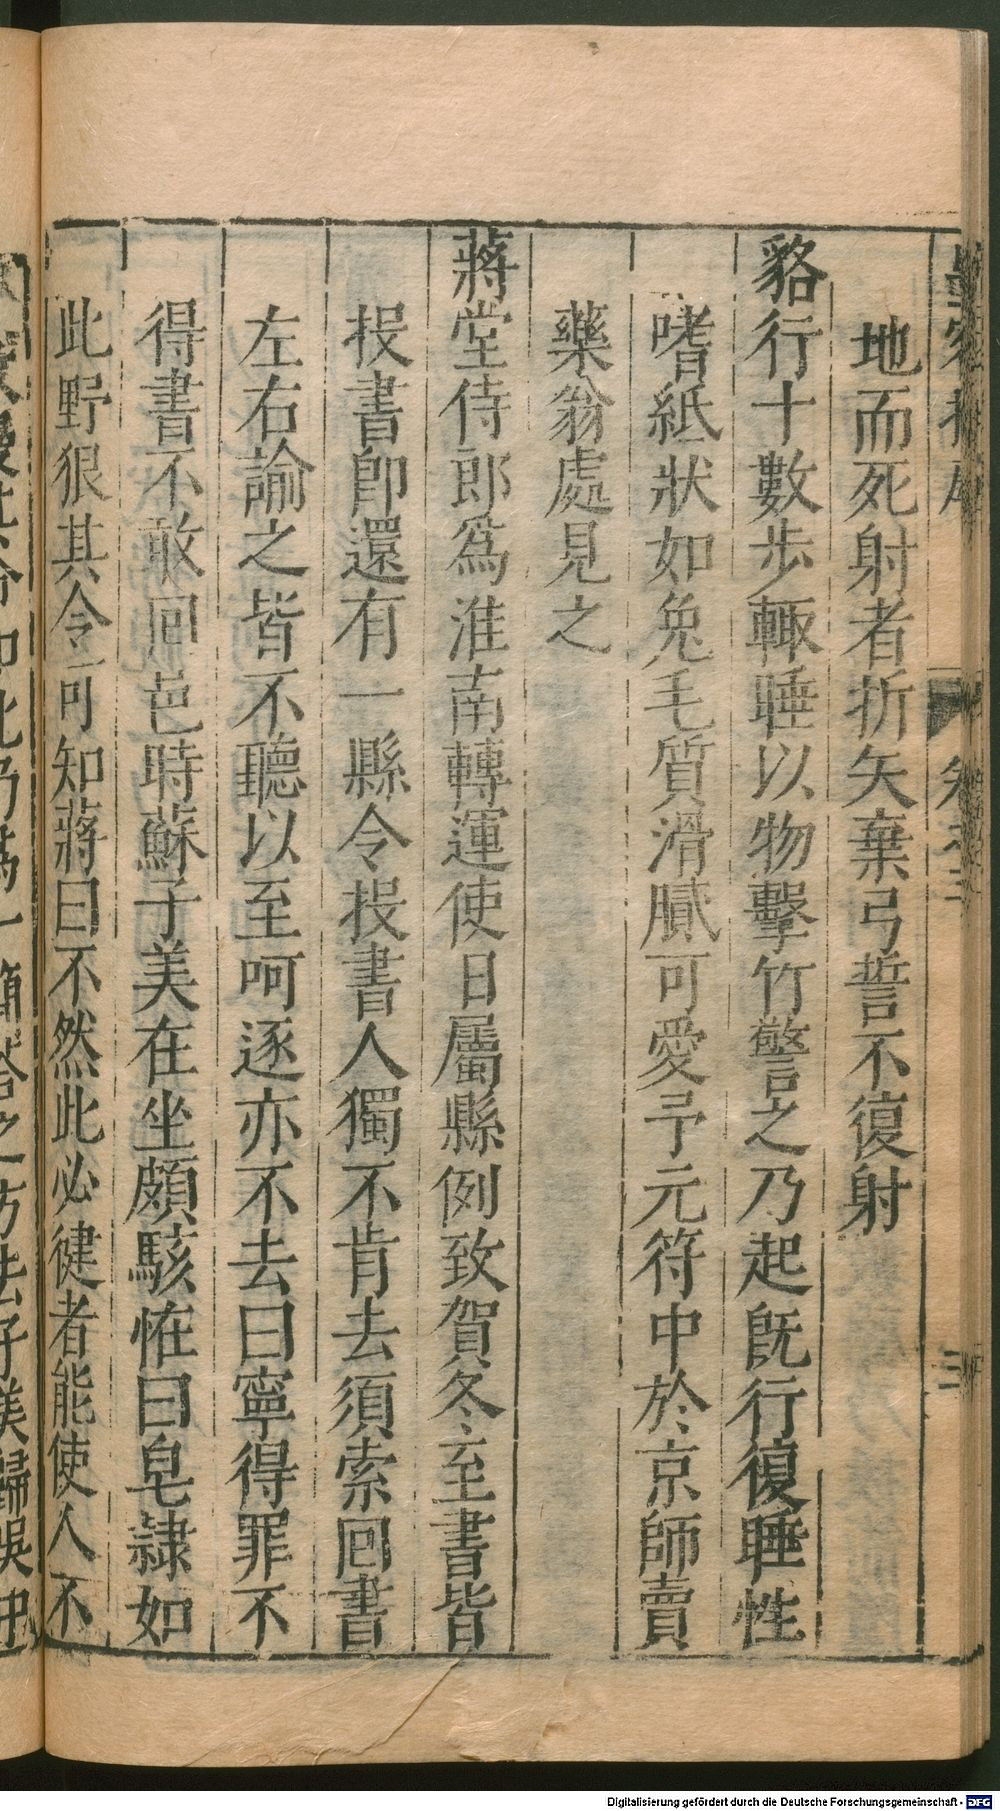 地而死射者折矢棄弓誓不復射
貉行十數步輙睡以物擊竹警之乃起旣行復睡性
嗜紙狀如兔毛質滑膩可愛予元符中於京師賣
藥翁處見之
蔣堂侍郎爲淮南轉運使日屬縣例致賀冬至書皆
投書卽還有一縣令投書人獨不肯去須索回書
左右諭之皆不聽以至呵逐亦不去曰寧得罪不
得書不敢回邑時蘇子美在坐頗駭恠曰皂隷如
此野狠其令可知蔣曰不然此必徤者能使人不
Digitalisierung gefördert durch die Deutsche Forschungsgemeinschaft - DFG